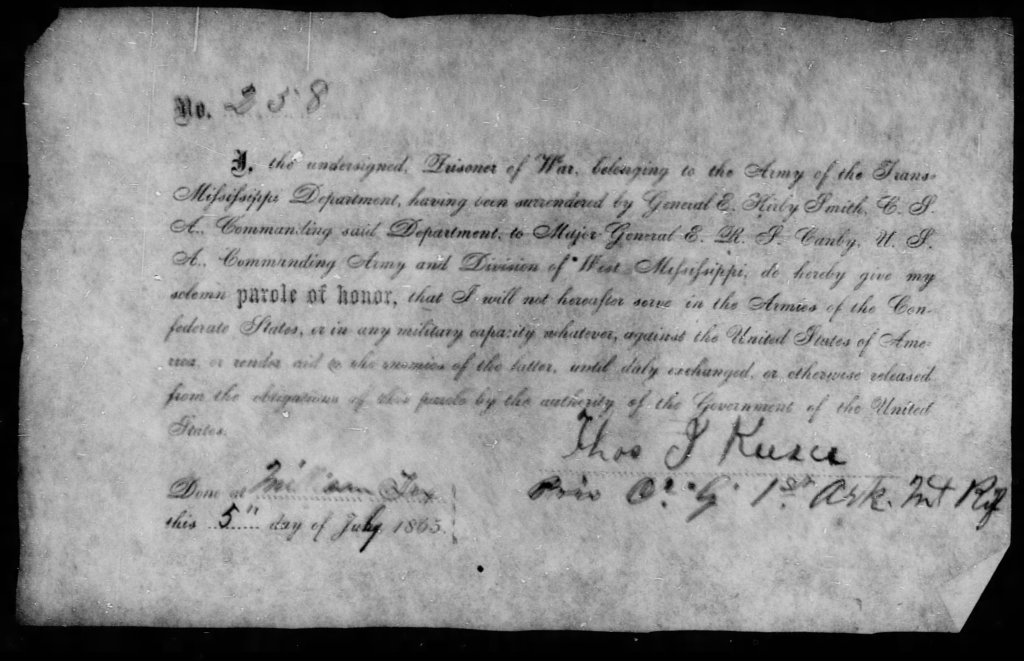 No. 258
I, the undersigned, Prisoner of War, belonging to the Army of the Trans-
Mississippi Department, having been surrendered by General E. Kirby Smith, C. S.
A., Commanding said Department, to Major General E. R. S. Canby, U. S.
A., Commanding Army and Division of West Mississippi, do hereby give my
solemn parole of honor, that I will not hereafter serve in the Armies of the Con-
federate States, or in any military capacity whatever, against the United States of Ame-
rica, or render aid to the enemies of the latter, until duly exchanged, or otherwise released
from the obligations of this parole by the authority of the Government of the United
States.
Thos J
Done at Millican Tex
Priv Co. "G" 1st Ark. Mt Rif
this 5" day of July 1865.